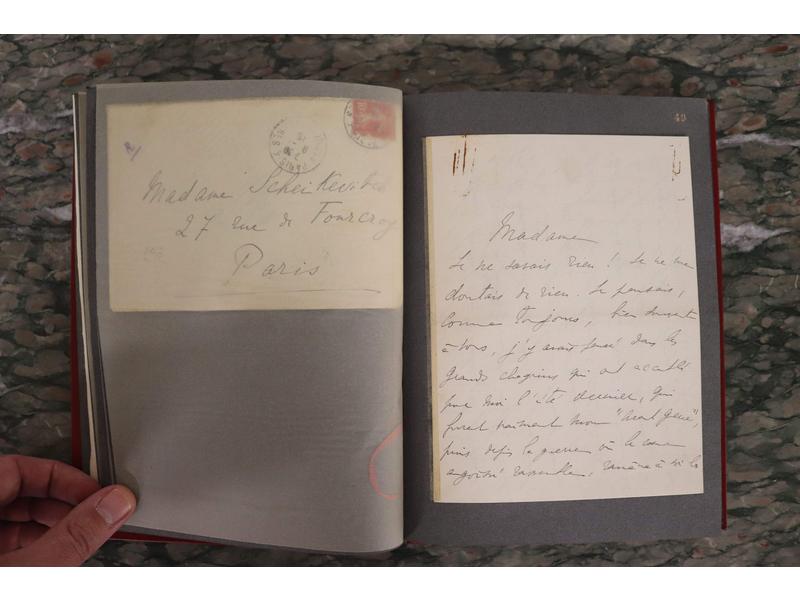 Madame Scheikevitch
27 rue de Fourcroy
Paris
49
Madame
Je ne savais rien ! Je ne me
doutais de rien. Je pensais,
comme toujours, bien souvent
à vous, j'y avais pensé dans les
grands chagrins qui ont accablé
pour moi l'été dernier, qui
furent vraiment mon "avant guerre",
puis depuis la guerre où le cœur
angoissé rassemble, ramène à soi les